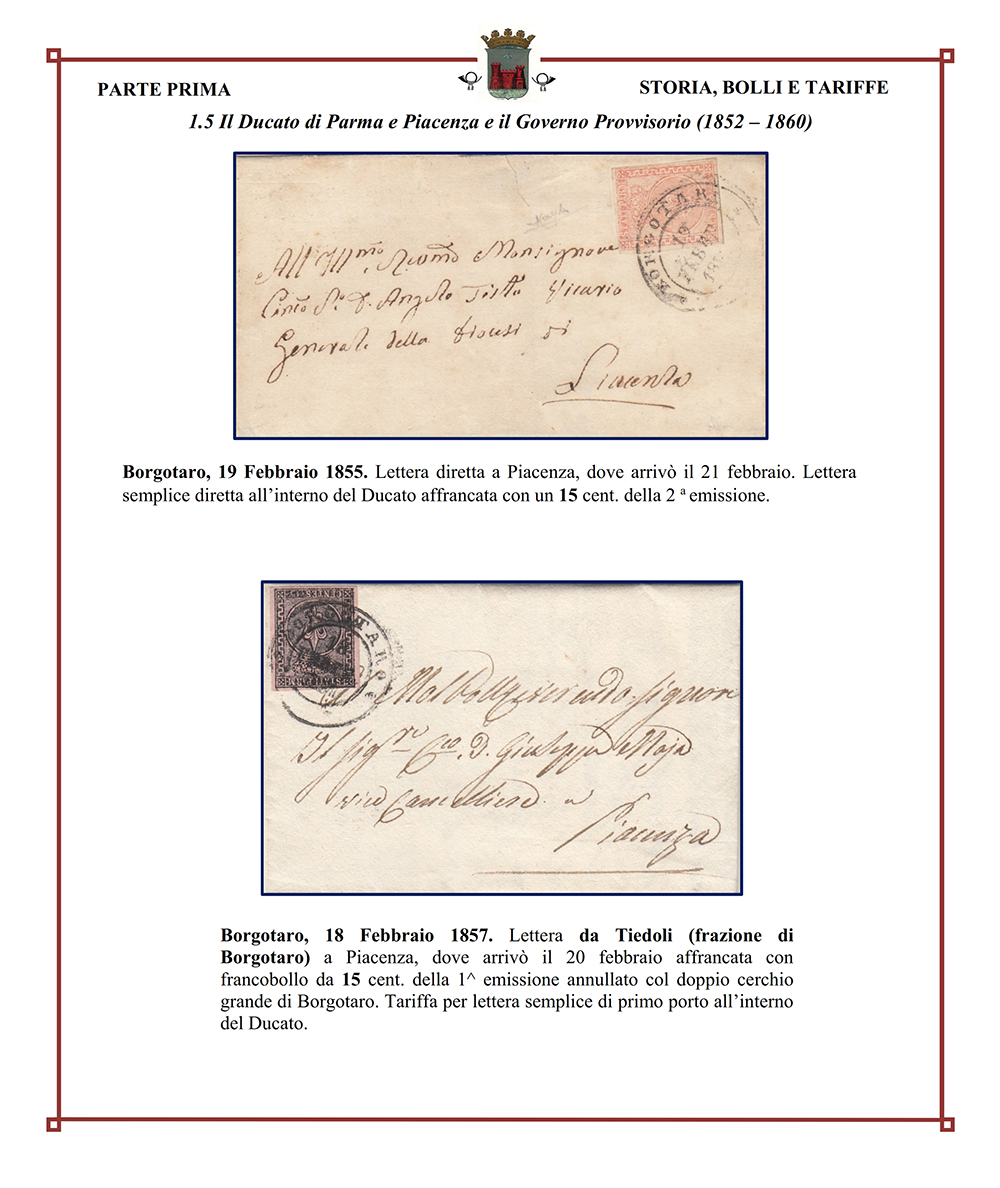 PARTE PRIMA
STORIA, BOLLI E TARIFFE
1.5 Il Ducato di Parma e Piacenza e il Governo Provvisorio (1852 – 1860)
BORGOTAR
19
FEBBR
185
All' Ill.mo Rev.mo Monsignore
D. Angelo Testa Vicario
Generale della Diocesi di
Piacenza
Borgotaro, 19 Febbraio 1855. Lettera diretta a Piacenza, dove arrivò il 21 febbraio. Lettera
semplice diretta all’interno del Ducato affrancata con un 15 cent. della 2 ª emissione.
TARO
Molto Reverendo Signore
Il Sig.re D. Giuseppe Maja
vice Cancelliere a
Piacenza
Borgotaro, 18 Febbraio 1857. Lettera da Tiedoli (frazione di
Borgotaro) a Piacenza, dove arrivò il 20 febbraio affrancata con
francobollo da 15 cent. della 1^ emissione annullato col doppio cerchio
grande di Borgotaro. Tariffa per lettera semplice di primo porto all’interno
del Ducato.